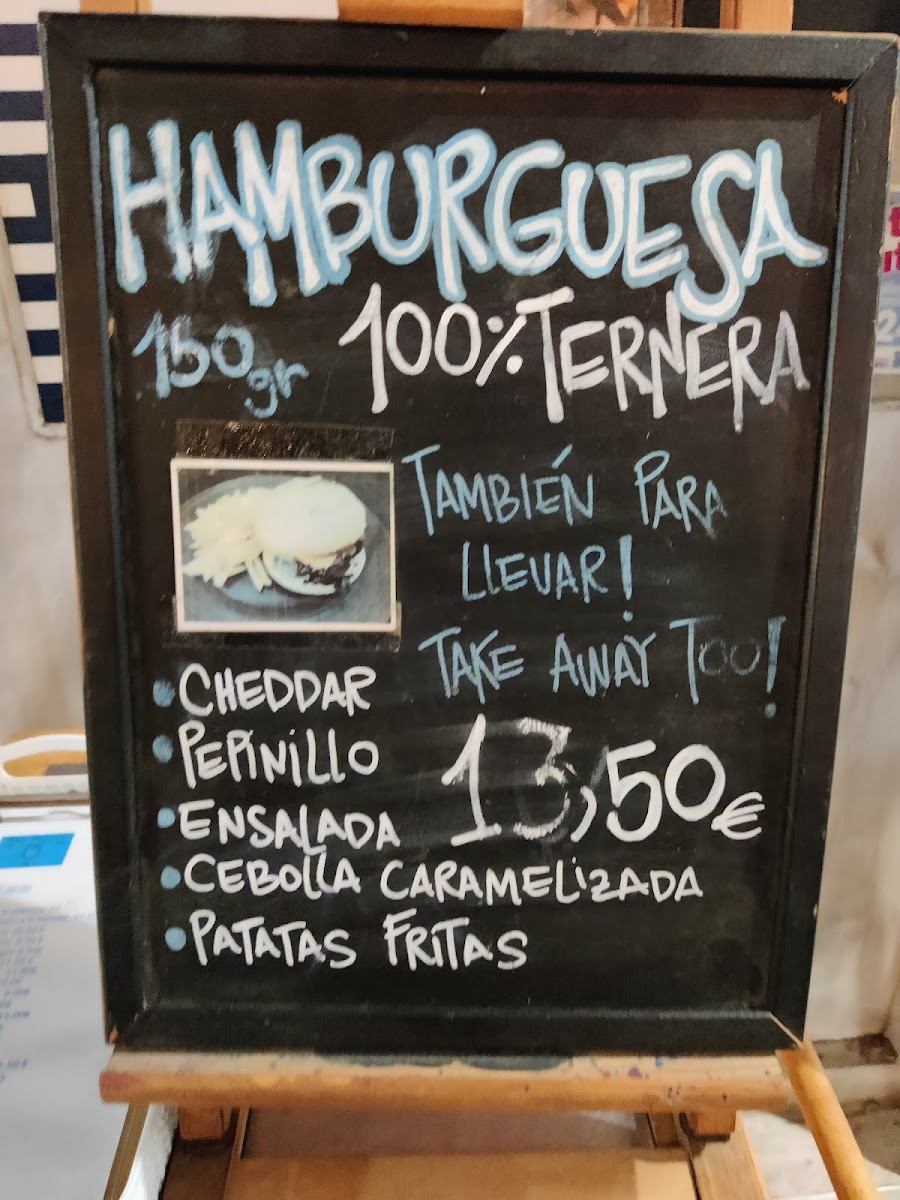 HAMBURGUESA
150gr 100% TERNERA
TAMBIÉN PARA
LLEVAR!
TAKE AWAY TOO!
• CHEDDAR
• PEPINILLO
• ENSALADA
13,50€
• CEBOLLA CARAMELIZADA
• PATATAS FRITAS